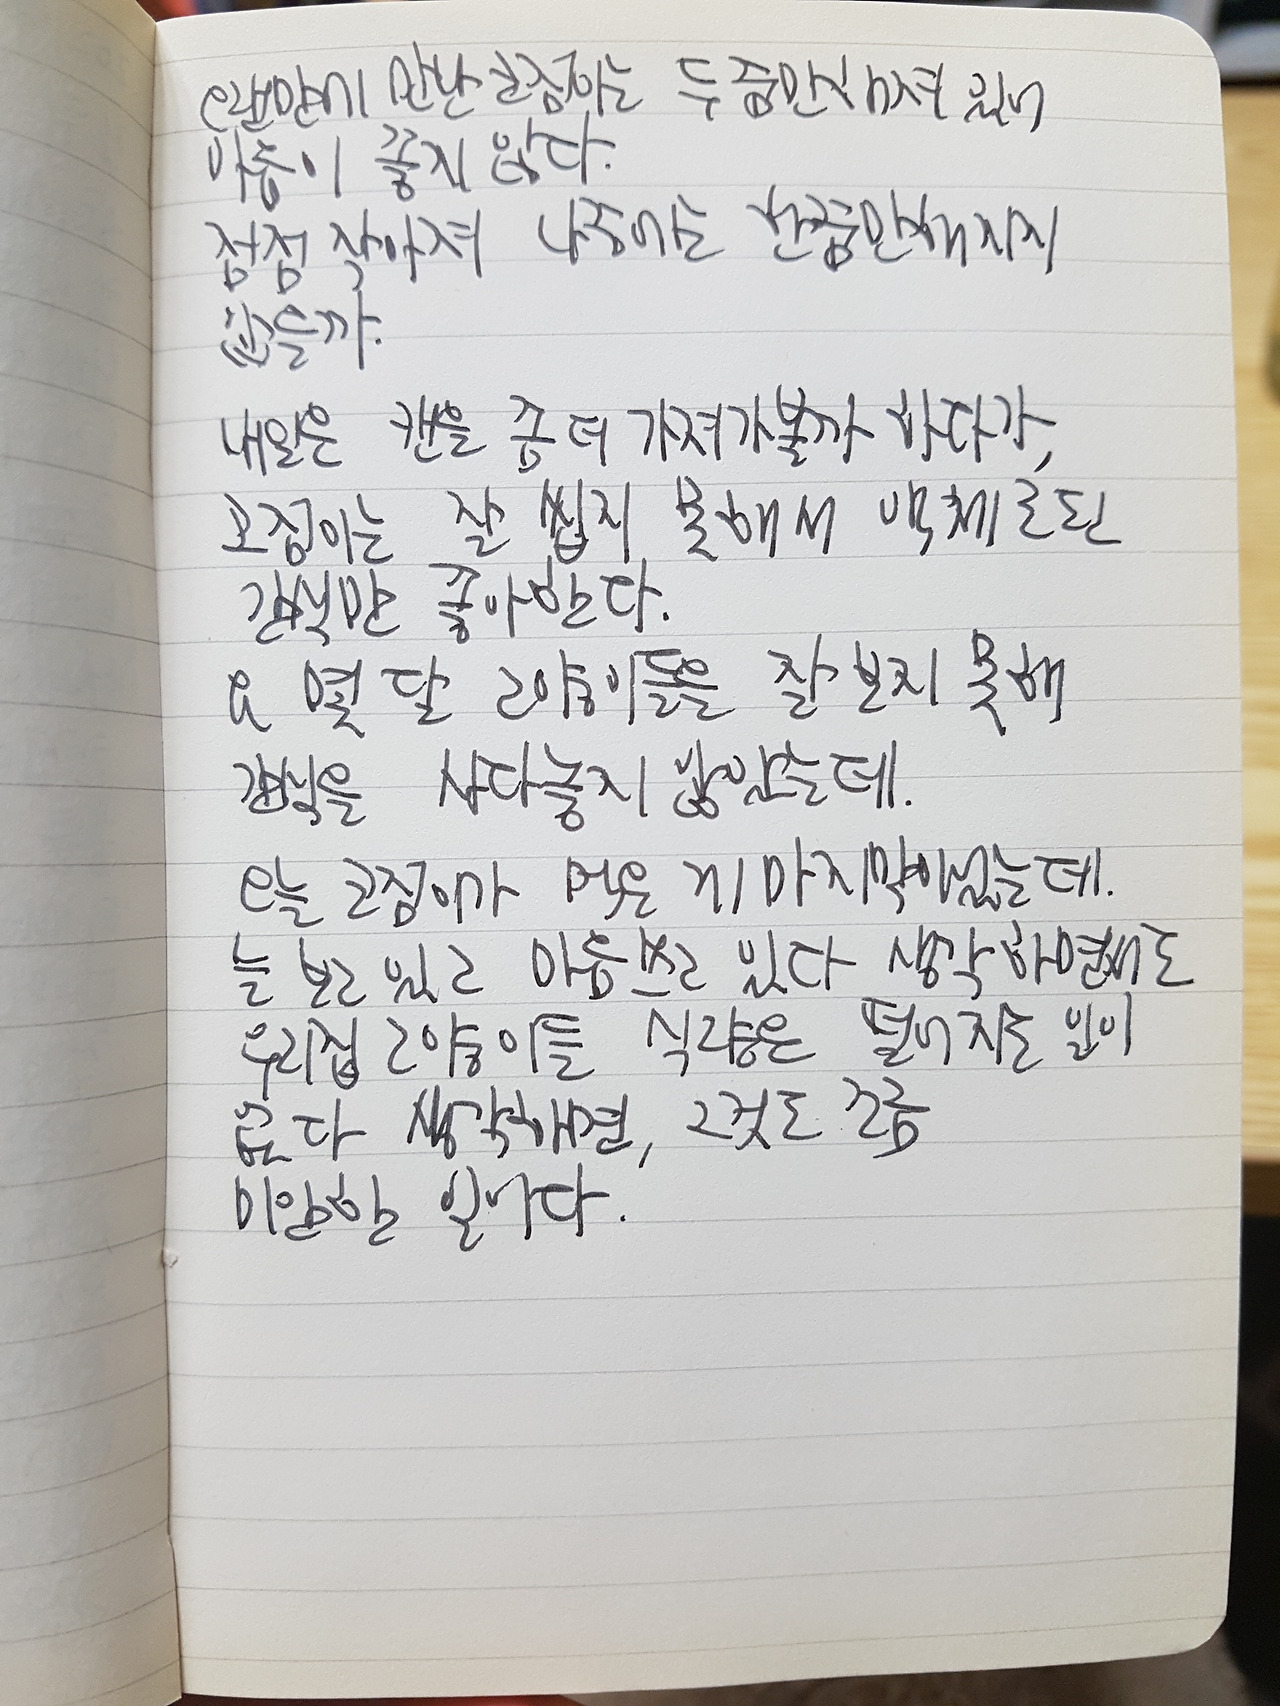 오랜만에 만난 코점이는 두 줌만 해져 있어
마음이 좋지 않다.
점점 작아져 나중에는 한줌만해지지
않을까.
내일은 캔을 좀 더 가져가볼까 하다가,
코점이는 잘 씹지 못해서 액체로된
간식만 좋아한다.
요 몇 달 고양이들은 잘 보지 못해
간식을 사다놓지 않았는데.
오늘 코점이가 먹은 게 마지막이었는데.
늘 보고 있고 마음쓰고 있다 생각하면서도
우리집 고양이들 식량은 떨어지는 일이
없다 생각하면, 그것도 조금
미안한 일이다.